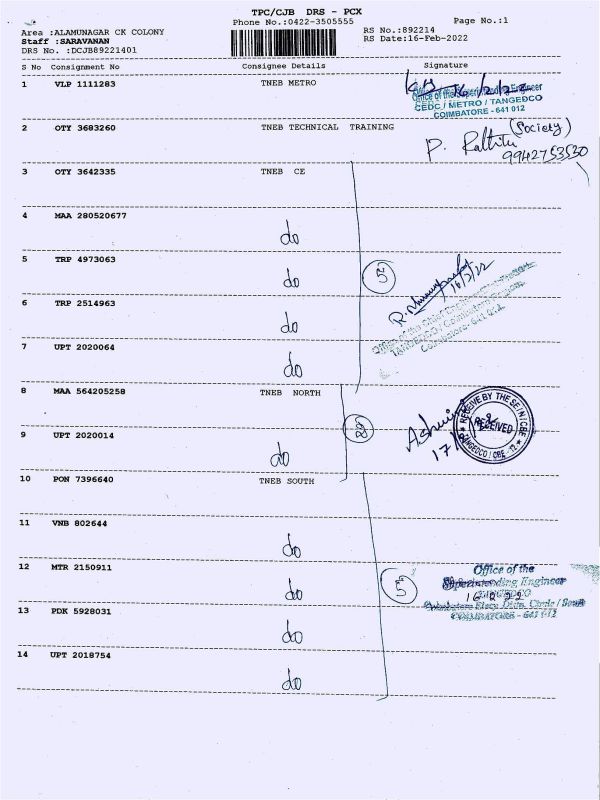 TPC/CJB DRS - PCX
Phone No.:0422-3505555 Page No.:1
Area :ALAMUNAGAR CK COLONY RS No.:892214
Staff :SARAVANAN RS Date:16-Feb-2022
DRS No. :DCJB89221401
S No Consignment No Consignee Details Signature
1 VLP 1111283 TNEB METRO
Office of the Superintending Engineer
CEDC / METRO / TANGEDCO
COIMBATORE - 641 012
2 OTY 3683260 TNEB TECHNICAL TRAINING
(Society)
P.
9942753530
3 OTY 3642335 TNEB CE
4 MAA 280520677 do
5 TRP 4973063 do 5
16/2/22
Office of the Chief Engineer
TANGEDCO / Coimbatore
Coimbatore - 641 012.
6 TRP 2514963 do
7 UPT 2020064 do
8 MAA 564205258 TNEB NORTH
RECEIVE BY THE SE/N/CBE
RECEIVED
TANGEDCO / CBE - 12
9 UPT 2020014 do
10 PON 7396640 TNEB SOUTH
11 VNB 802644 do
12 MTR 2150911 do 5
Office of the
Superintending Engineer
TANGEDCO
Coimbatore Elecy. Distn. Circle / South
COIMBATORE - 641 012
13 PDK 5928031 do
14 UPT 2018754 do